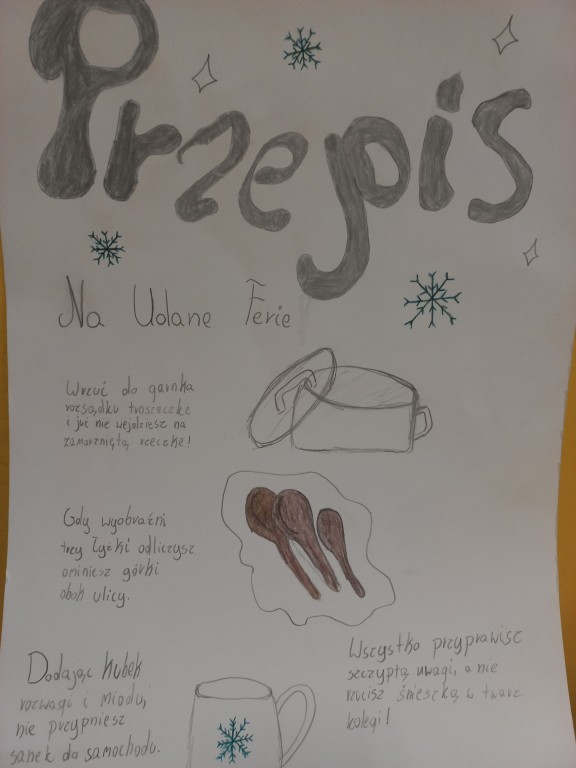 Przepis
Na Udane Ferie
Wrzuć do garnka
rozsądku troszeczkę
i już nie wejdziesz na
zamarzniętą rzeczkę!
Gdy wyobraźni
trzy łyżki odliczysz
ominiesz górki
obok ulicy.
Dodając kubek
rozwagi i miodu,
nie przypniesz
sanek do samochodu.
Wszystko przyprawisz
szczyptą uwagi, a nie
rzucisz śnieżką w twarz
kolegi!